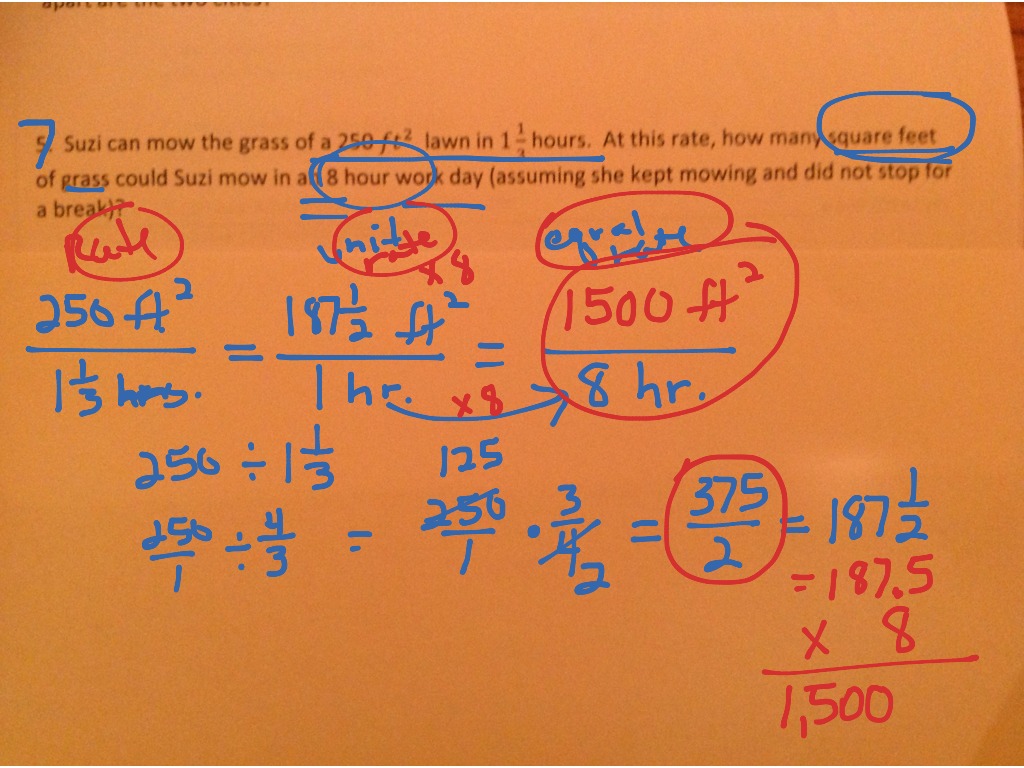 apart are the two cities?
7 5. Suzi can mow the grass of a 250 ft² lawn in 1 1/3 hours. At this rate, how many square feet
of grass could Suzi mow in an 8 hour work day (assuming she kept mowing and did not stop for
a break)?
Rate unit rate equal rate
250 ft² / 1 1/3 hrs. = 187 1/2 ft² / 1 hr. = 1500 ft² / 8 hr.
x 8
x 8
250 ÷ 1 1/3
125
250/1 ÷ 4/3 = 250/1 · 3/4 2 = 375/2 = 187 1/2
= 187.5
x 8
1,500